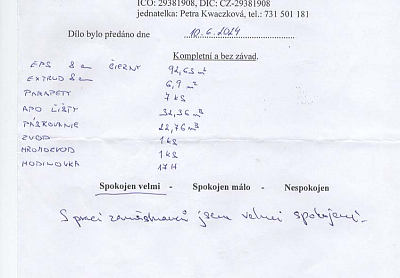 IČO: 29381908, DIČ: CZ-29381908
jednatelka: Petra Kwaczková, tel.: 731 501 181
Dílo bylo předáno dne 10.6.2024
Kompletní a bez závad.
EPS 8 cm ČIERNY 92,63 m²
EXTRUD 8 cm 6,9 m²
PARAPETY 7 KS
APO LIŠTY 32,36 m
PÁSKOVANIE 22,76 m
ZVOD 1 KS
HROMOZVOD 1 KS
HODINOVKA 17 H
Spokojen velmi - Spokojen málo - Nespokojen
S prací zaměstnanců jsem velmi spokojený.